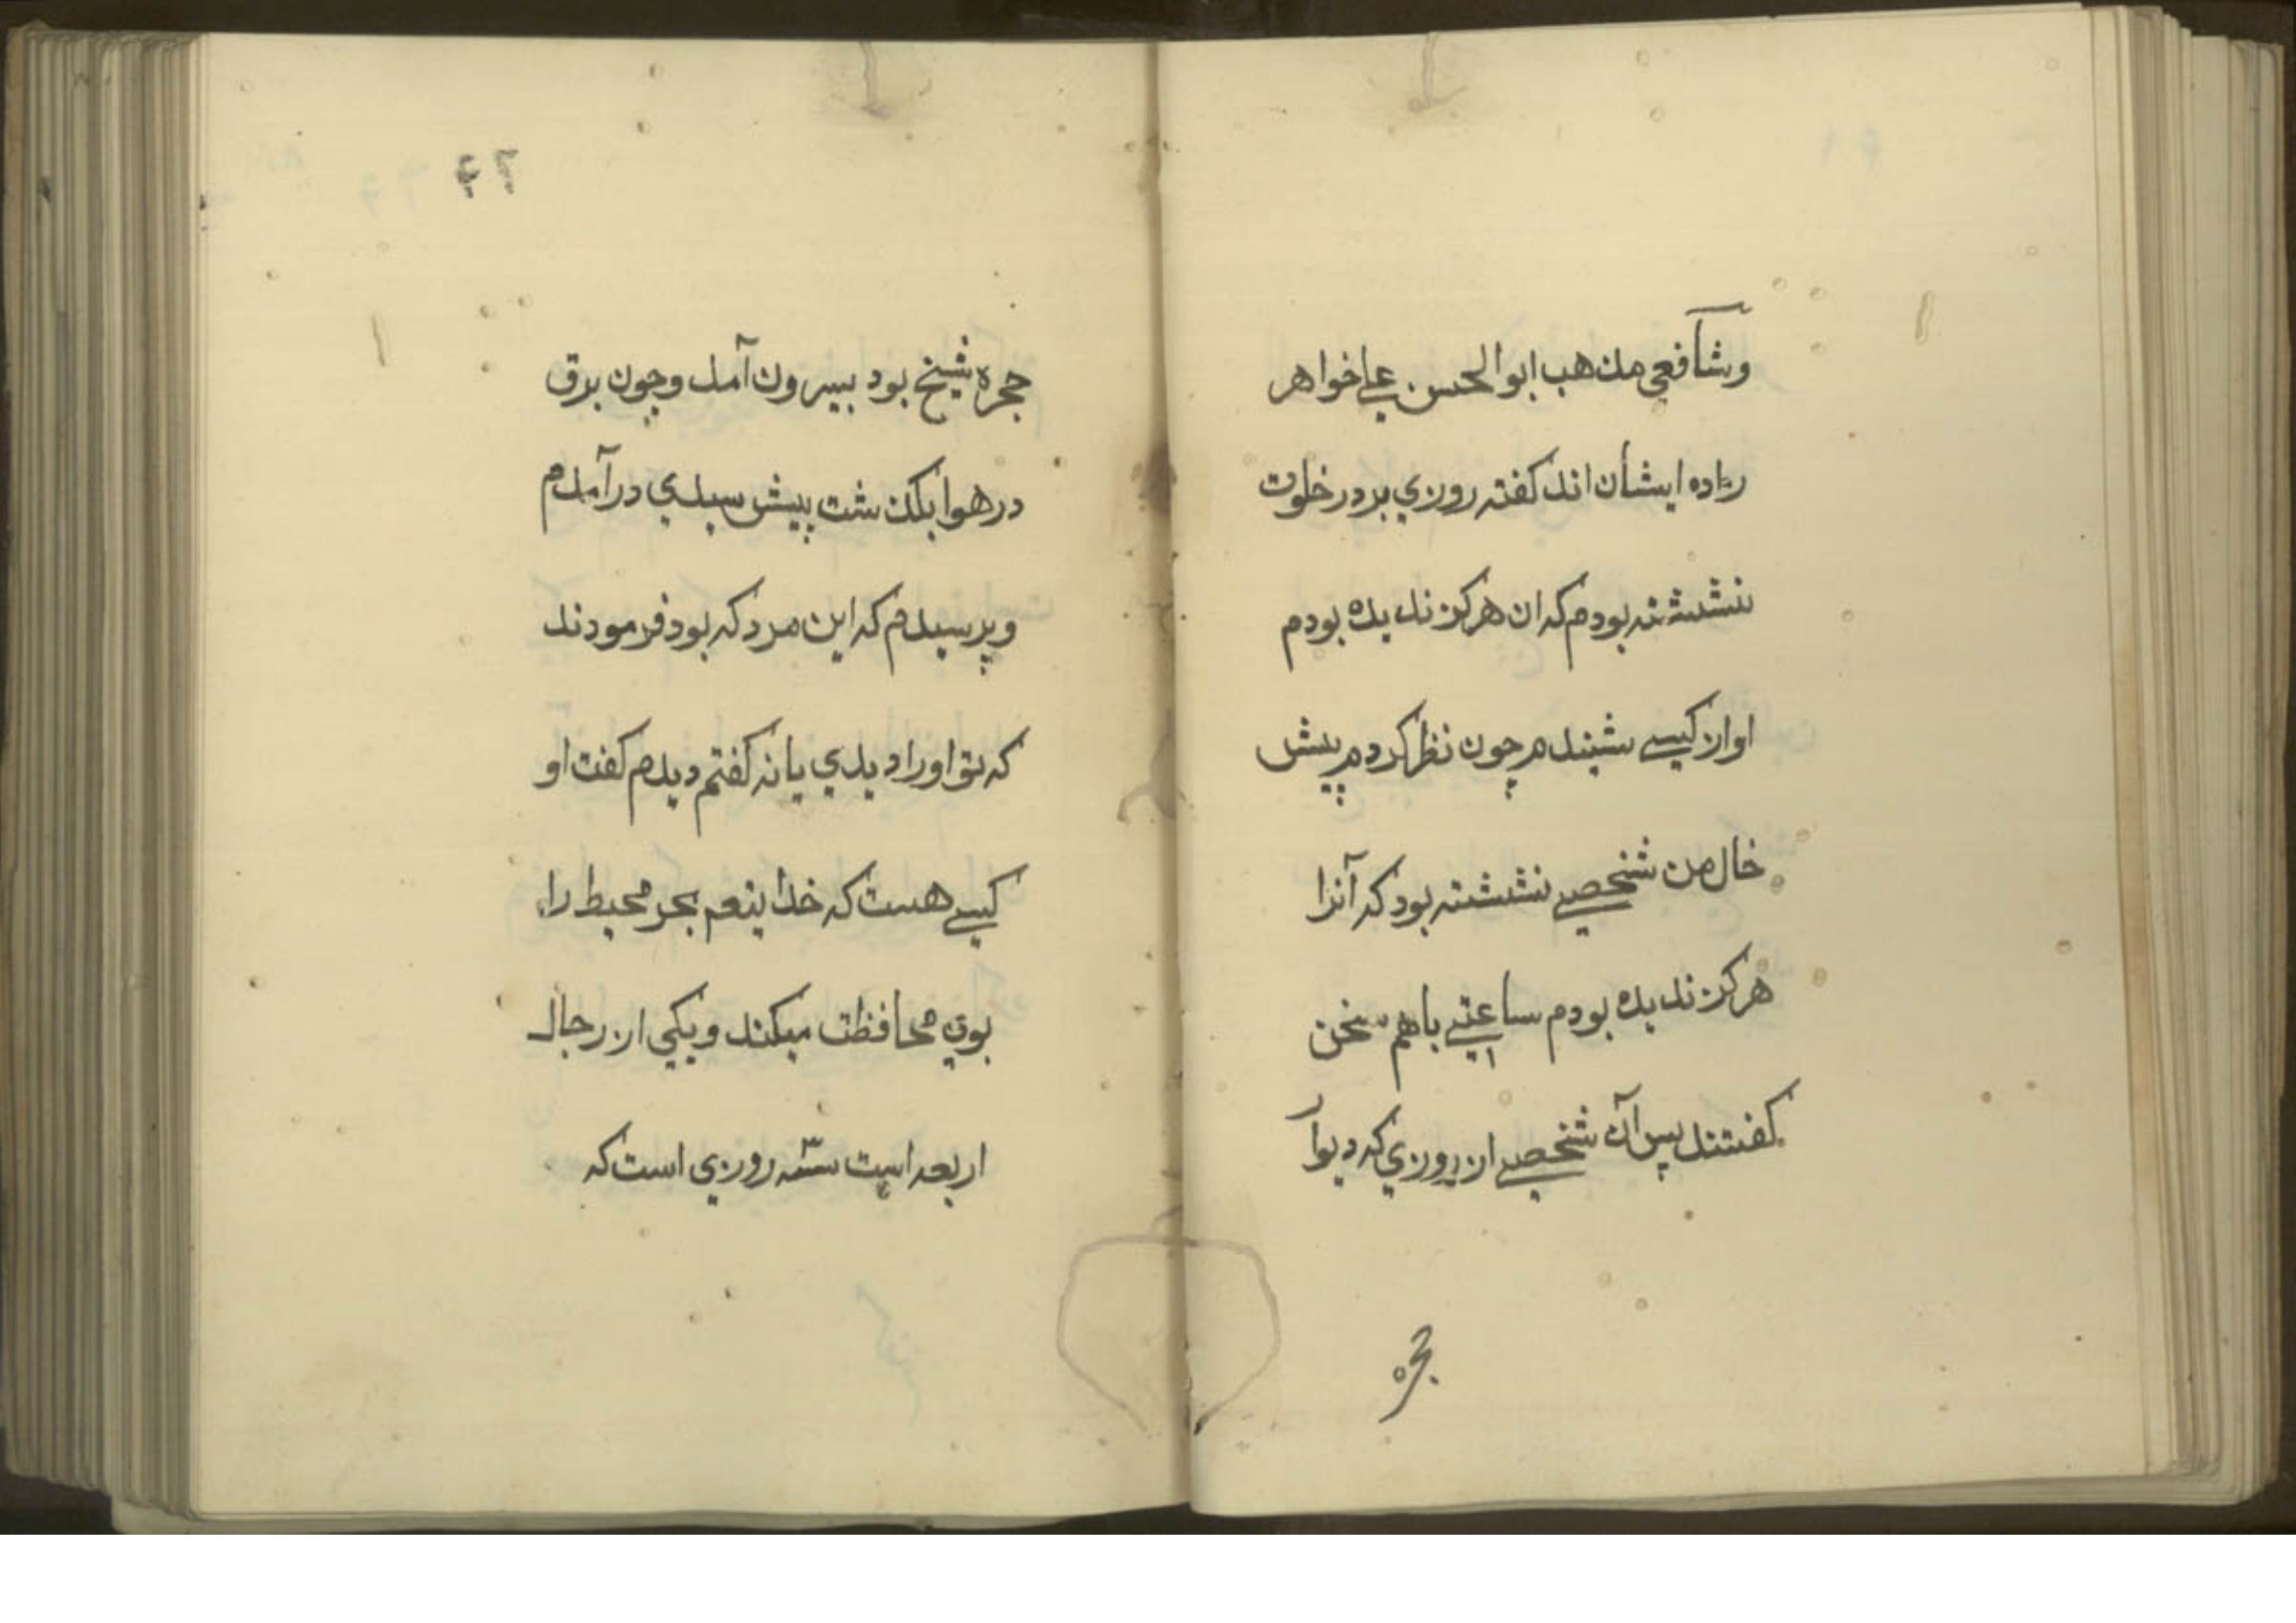 وشآفعي مذهب ابوالحسن علے خواهر
زاده ايشان اند كفته روزي بردر خلوت
نشسته بودم كه ان هركز نديده بودم
اواز كيسے شنيدم چون نظر كردم پيش
خال من شخصے نشسته بود كه آنرا
هركز نديده بودم ساعتے باهم سخن
كفتند پس آن شخصے از روزي كه ديوار
حجره
٦٢
حجره شيخ بود بيرون آمد وچون برق
درهوا بكذشت پيش سيدي درآمدم
وپرسيدم كه اين مرد كه بود فرمودند
كه تو اورا ديدي يا نه كفتم ديدم كفت او
كيسے هست كه خدايتعم بحر محيط را
بوي محافظت ميكند ويكي از رجال
اربعه است سه روزي است كه